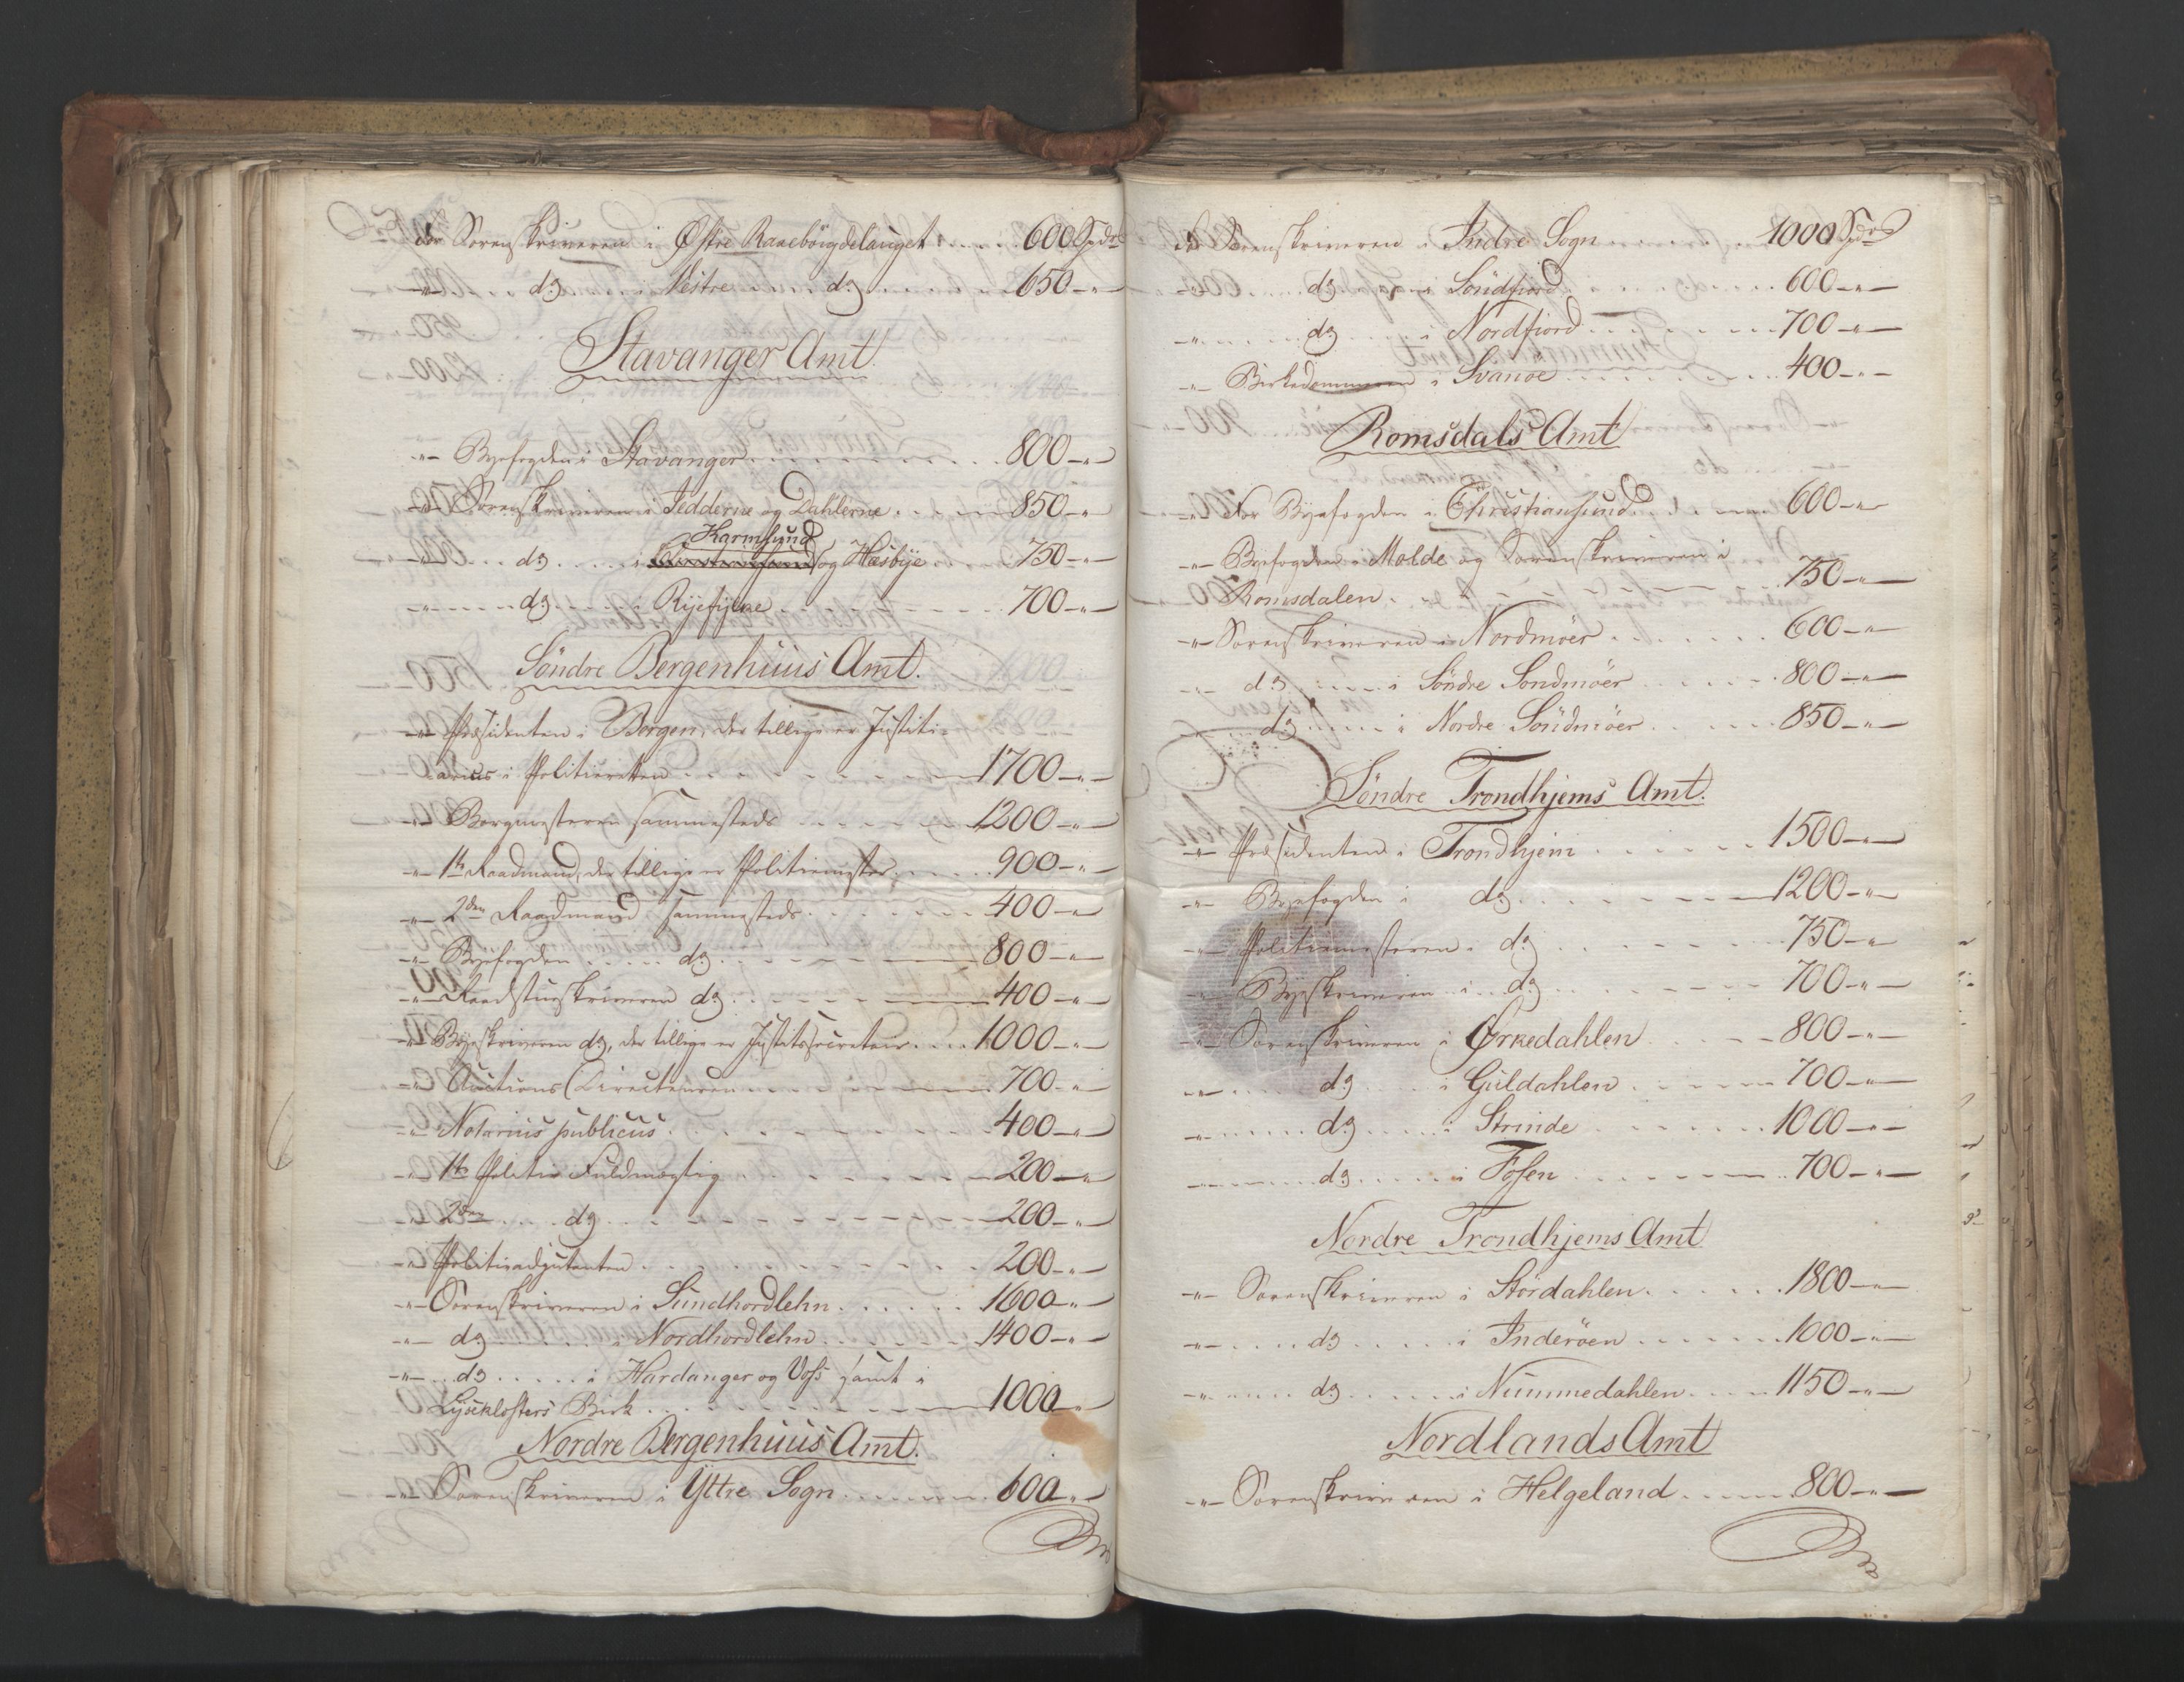 For Sorenskriveren i Østre Raaebøigdelauget 600 Spdr
-"- do i Vestre do 650 -"-
Stavanger Amt.
-"- Byefogden i Stavanger 800 -"-
-"- Sorenskriveren i Jedderne og Dahlerne 850 -"-
Karmsund
-"- do i og Hesbye 750 -"-
-"- do i Ryefylke 700 -"-
Søndre Bergenhuus Amt.
-"- Præsidenten i Bergen, der tillige er Justiti-
arius i Politieretten 1700 -"-
-"- Borgmesteren sammesteds 1200 -"-
-"- 1te Raadmand, der tillige er Politiemester 900 -"-
-"- 2den Raadmand sammesteds 400 -"-
-"- Byefogden do 800 -"-
-"- Raadstueskriveren do 400 -"-
-"- Byeskriveren do, der tillige er Justitssecretair 1000 -"-
-"- Auctions Directeuren 700 -"-
-"- Notarius publicus 400 -"-
-"- 1te Politie Fuldmægtig 200 -"-
-"- 2den do 200 -"-
-"- Politieadjutanten 200 -"-
-"- Sorenskriveren i Sundhordlehn 1600 -"-
-"- do i Nordhordlehn 1400 -"-
-"- do i Hardanger og Voss samt i
Lyseklosters Birk 1000 -"-
Nordre Bergenhuus Amt.
-"- Sorenskriveren i Yttre Sogn 600 -"-
For Sorenskriveren i Indre Sogn 1000 Spdr
-"- do i Søndfiord 600 -"-
-"- do i Nordfiord 700 -"-
-"- Birkedommeren i Svanøe 400 -"-
Romsdals Amt
-"- For Byefogden i Christiansund 600 -"-
-"- Byefogden i Molde og Sorenskriveren i
Romsdalen 750 -"-
-"- Sorenskriveren i Nordmøer 600 -"-
-"- do i Søndre Søndmøer 800 -"-
-"- do i Nordre Søndmøer 850 -"-
Søndre Trondhjems Amt.
-"- Præsidenten i Trondhjem 1500 -"-
-"- Byefogden i do 1200 -"-
-"- Politiemesteren i do 750 -"-
-"- Byeskriveren i do 700 -"-
-"- Sorenskriveren i Ørkedahlen 800 -"-
-"- do i Guldahlen 700 -"-
-"- do i Strinde 1000 -"-
-"- do i Fosen 700 -"-
Nordre Trondhjems Amt
-"- Sorenskriveren i Størdahlen 1800 -"-
-"- do i Inderøen 1000 -"-
-"- do i Nummedahlen 1150 -"-
Nordlands Amt
-"- Sorenskriveren i Helgeland 800 -"-